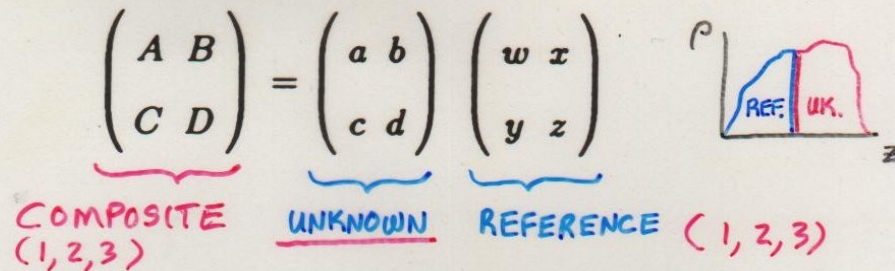 ( A B C D ) = ( a b c d ) ( w x y z )
ρ
REF. UK.
z
COMPOSITE UNKNOWN REFERENCE (1,2,3)
(1,2,3)